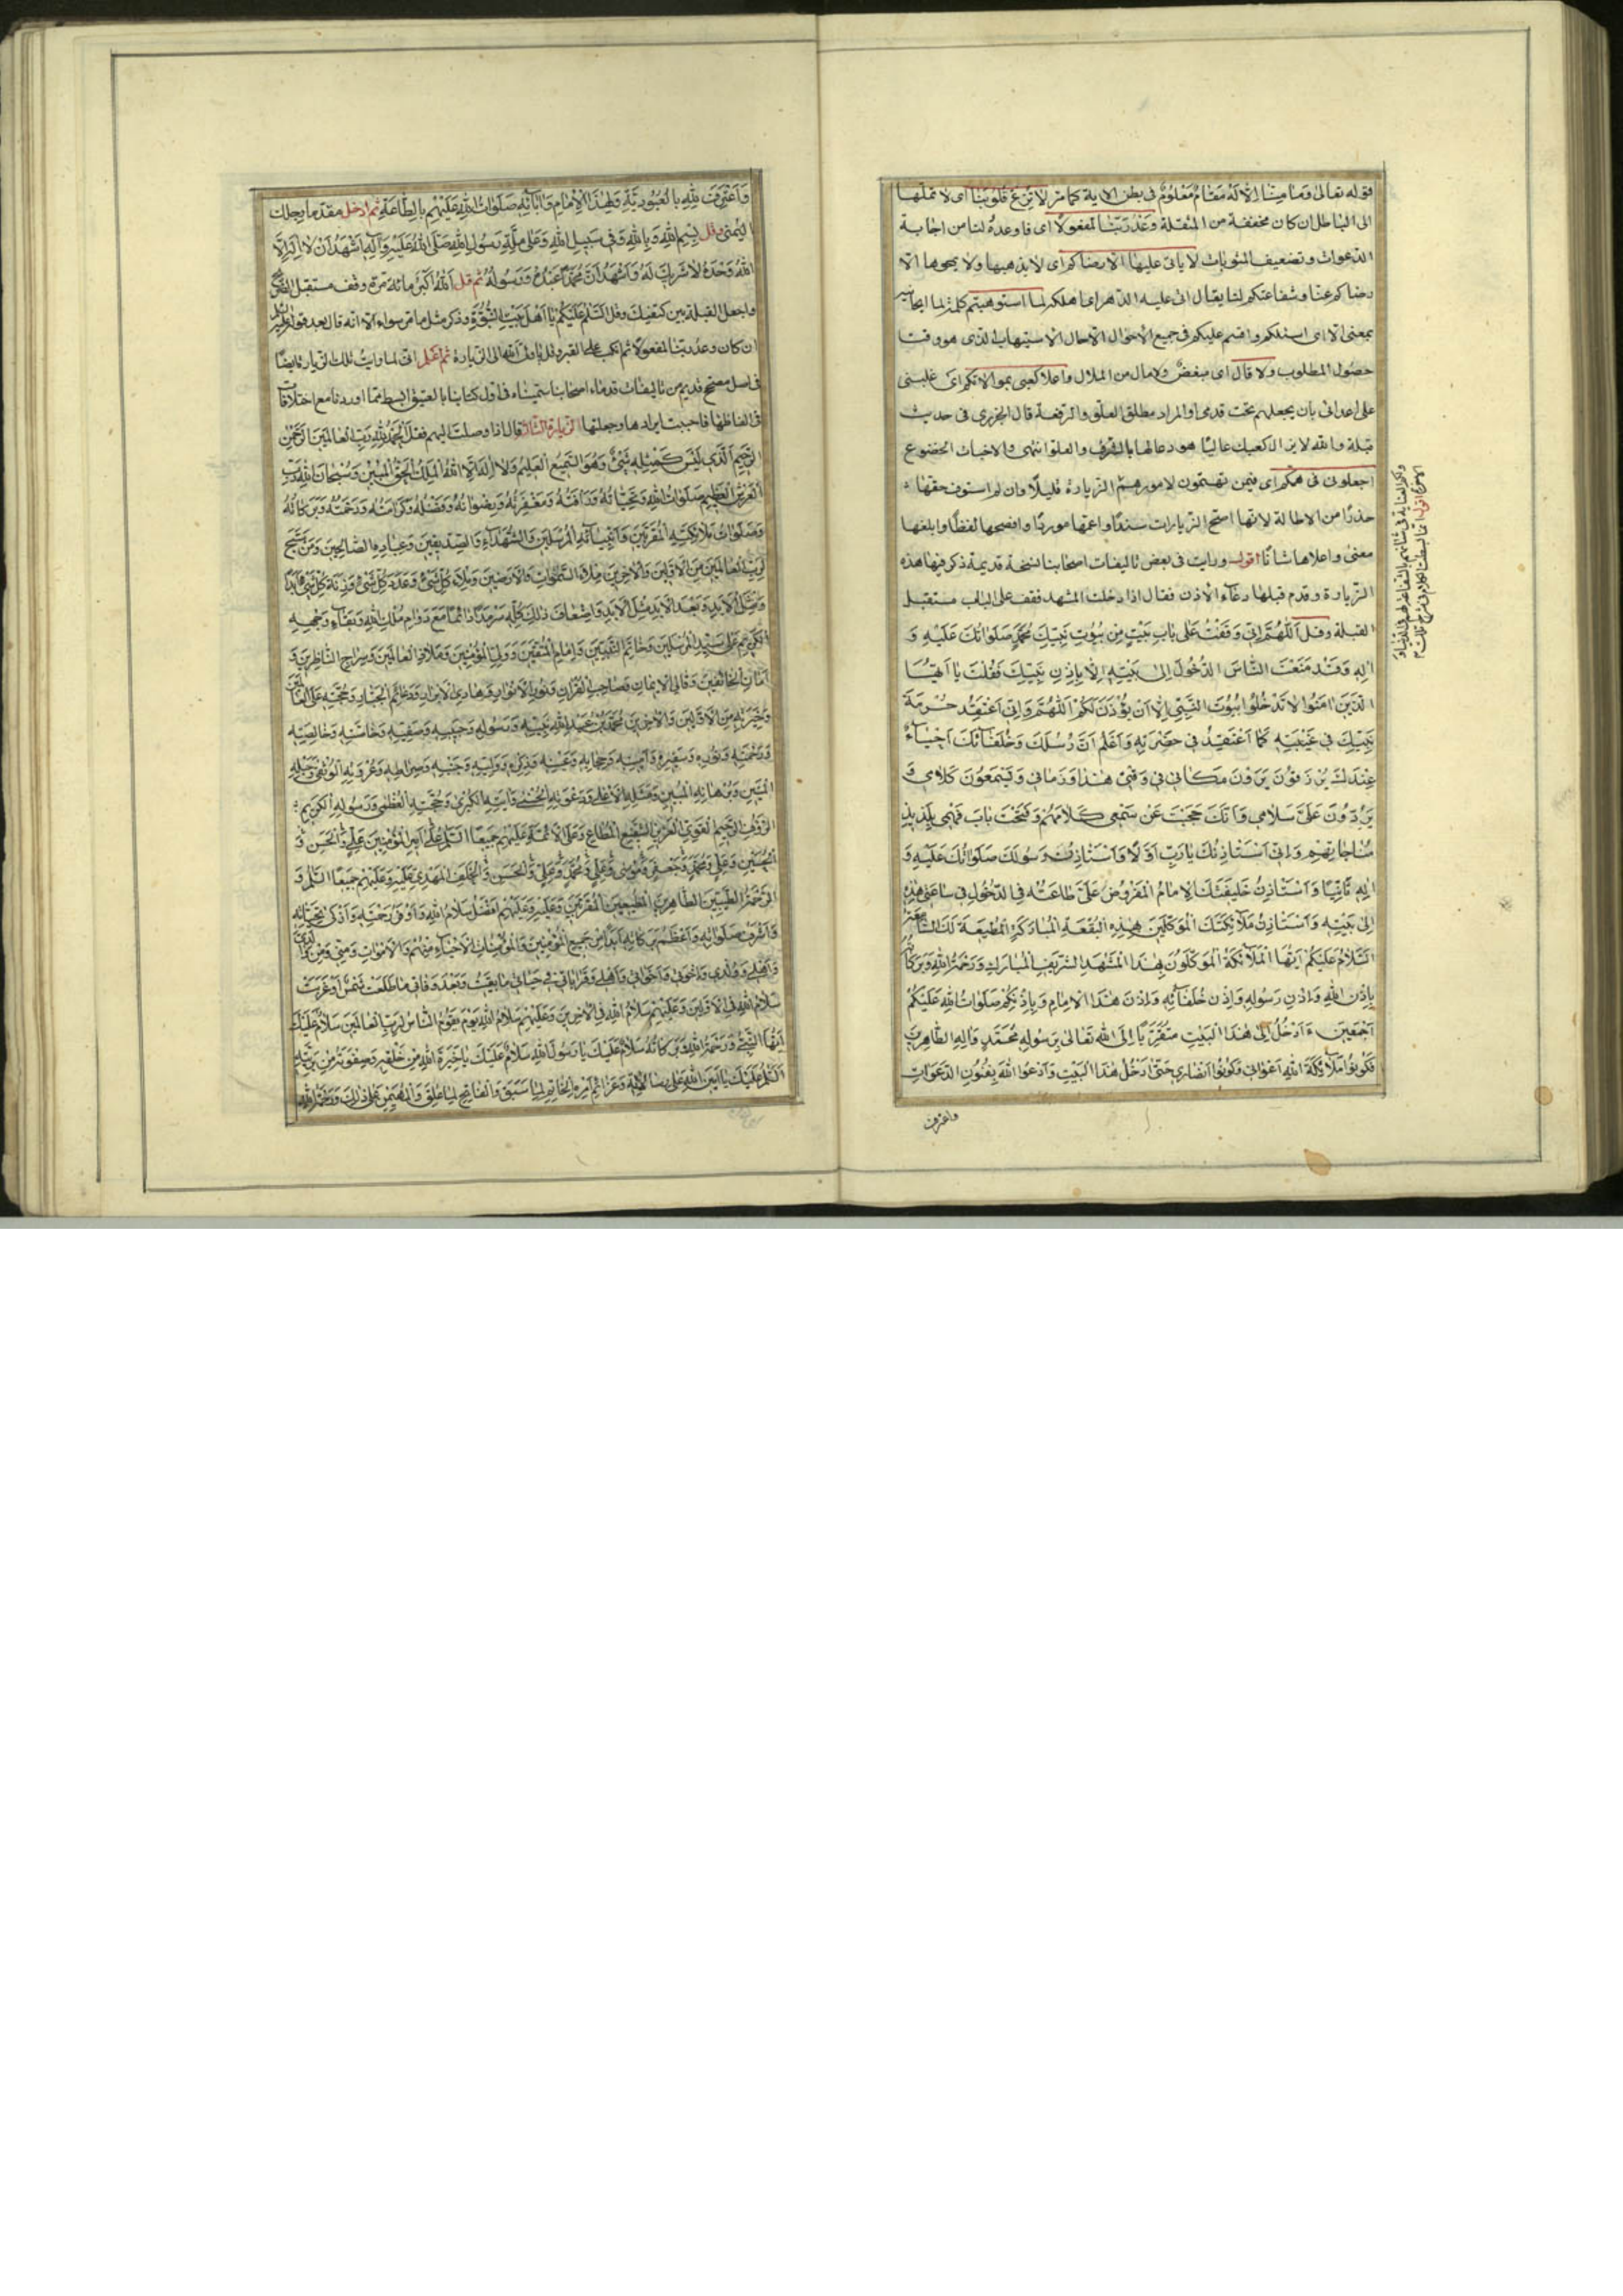 قوله تعالى وما منا الا له مقام معلوم في بطن الآية كما مر لا تزغ قلوبنا اى لا تملها
الى الباطل ان كان مخففة من المثقلة وعد ربنا لمفعولا اى ما وعده لنا من اجابة
الدعوات وتضعيف المثوبات لا ياتى عليها الا رضاكم اى لا يذهبها ولا يمحوها الا
رضاكم عنا وشفاعتكم لنا يقال اتى عليه الدهر اى اهلكه لما استوهبتم كلمة لما ايجابية
بمعنى الا اى اسئلكم واقسم عليكم فى جميع الاحوال الا حال الاستيهاب الذى هو وقت
حصول المطلوب ولا قال اى مبغض ولا مال من الملال واعلا كعبى بموالاتكم اى غلبنى
على اعدائى بان يجعلهم تحت قدمى او المراد مطلق العلو والرفعة قال الجزرى فى حديث
قيلة والله لا يزال كعبك عاليا هو دعا لها بالشرف والعلو انتهى والاخبات الخضوع
اجعلونى فى همكم اى فيمن تهتمون لامورهم الزيارة قليلا وان لم استوف حقها
حذرا من الاطالة لانها اصح الزيارات سندا واعمها موردا وافصحها لفظا وابلغها
معنى واعلاها شانا اقول ورايت فى بعض تاليفات اصحابنا نسخة قديمة ذكر فيها هذه
الزيارة وقدم قبلها دعاء الاذن فقال اذا دخلت المشهد فقف على الباب مستقبل
القبلة وقل اَللّٰهُمَّ اِنّى وَقَفْتُ عَلى بابِ بَيْتٍ مِنْ بُيُوتِ نَبِيِّكَ مُحَمَّدٍ صَلَواتُكَ عَلَيْهِ وَ
الِهِ وَقَدْ مَنَعْتَ النّاسَ الدُّخُولَ اِلى بَيْتِهِ اِلّا بِاِذْنِ نَبِيِّكَ فَقُلْتَ يا اَيُّهَا
الَّذينَ امَنُوا لا تَدْخُلُوا بُيُوتَ النَّبِىِّ اِلّا اَنْ يُؤْذَنَ لَكُمْ اَللّٰهُمَّ وَاِنّى اَعْتَقِدُ حُرْمَةَ
نَبِيِّكَ فى غَيْبَتِهِ كَما اَعْتَقِدُ فى حَضْرَتِهِ وَاَعْلَمُ اَنَّ رُسُلَكَ وَخُلَفائَكَ اَحْياءٌ
عِنْدَكَ يُرْزَقُونَ يَرَوْنَ مَكانى فى وَقْتى هٰذا وَزَمانى وَيَسْمَعُونَ كَلامى وَ
يَرُدُّونَ عَلَىَّ سَلامى وَاَنَّكَ حَجَبْتَ عَنْ سَمْعى كَلامَهُمْ وَفَتَحْتَ بابَ فَهْمى بِلَذيذِ
مُناجاتِهِمْ وَاِنّى اَسْتَاْذِنُكَ يا رَبِّ اَوَّلاً وَاَسْتَاْذِنُ رَسُولَكَ صَلَواتُكَ عَلَيْهِ وَ
الِهِ ثانِيًا وَاَسْتَاْذِنُ خَليفَتَكَ الاِمامَ الْمَفْرُوضَ عَلَىَّ طاعَتُهُ فِى الدُّخُولِ فى ساعَتى هٰذِهِ
اِلى بَيْتِهِ وَاَسْتَاْذِنُ مَلآئِكَتَكَ الْمُوَكَّلينَ بِهٰذِهِ الْبُقْعَةِ الْمُبارَكَةِ الْمُطيعَةَ لَكَ السّامِعَةَ
اَلسَّلامُ عَلَيْكُمْ اَيُّهَا الْمَلآئِكَةُ الْمُوَكَّلُونَ بِهٰذَا الْمَشْهَدِ الشَّريفِ الْمُبارَكِ وَرَحْمَةُ اللهِ وَبَرَكاتُهُ
بِاِذْنِ اللهِ وَاِذْنِ رَسُولِهِ وَاِذْنِ خُلَفآئِهِ وَاِذْنِ هٰذَا الْاِمامِ وَبِاِذْنِكُمْ صَلَواتُ اللهِ عَلَيْكُمْ
اَجْمَعينَ اَدْخُلُ اِلى هٰذَا الْبَيْتِ مُتَقَرِّبًا اِلَى اللهِ تَعالى بِرَسُولِهِ مُحَمَّدٍ وَالِهِ الطّاهِرينَ
فَكُونُوا مَلآئِكَةَ اللهِ اَعْوانى وَكُونُوا اَنْصارى حَتّى اَدْخُلَ هٰذَا الْبَيْتَ وَاَدْعُوَ اللهَ بِفُنُونِ الدَّعَواتِ
واعترف
وَاَعْتَرِفَ لِلّٰهِ بِالْعُبُودِيَّةِ وَلِهٰذَا الْاِمامِ وَآبآئِهِ صَلَواتُ اللهِ عَلَيْهِمْ بِالطّاعَةِ ثم ادخل مقدما رجلك
اليمنى وقل بِسْمِ اللهِ وَبِاللهِ وَفى سَبيلِ اللهِ وَعَلى مِلَّةِ رَسُولِ اللهِ صَلَّى اللهُ عَلَيْهِ وَآلِهِ اَشْهَدُ اَنْ لا اِلٰهَ اِلَّا
اللهُ وَحْدَهُ لا شَريكَ لَهُ وَاَشْهَدُ اَنَّ مُحَمَّدًا عَبْدُهُ وَرَسُولُهُ ثم قل اَللهُ اَكْبَرُ مائة مرة وقف مستقبل الضريح
واجعل القبلة بين كتفيك وقل اَلسَّلامُ عَلَيْكُمْ يا اَهْلَ بَيْتِ النُّبُوَّةِ وذكر مثل ما مر سواء الا انه قال بعد قوله
ان كان وعد ربنا لمفعولا ثم انكب على القبر وقل يا ولى الله الى الزيارة ثم اعلم انى لما رايت تلك الزيارة ايضا
فى اصل مصحح قديم من تاليفات قدماء اصحابنا سميناه فى اول كتابنا بالعتيق ابسط مما اوردنا مع اختلافات
فى الفاظها فاحببت ايرادها وجعلتها الزيارة الثالثة قال اذا وصلت اليهم فقل اَلْحَمْدُ لِلّٰهِ رَبِّ الْعالَمينَ الرَّحْمٰنِ
الرَّحيمِ الَّذى لَيْسَ كَمِثْلِهِ شَىْءٌ وَهُوَ السَّميعُ الْعَليمُ وَلا اِلٰهَ اِلَّا اللهُ الْمَلِكُ الْحَقُّ الْمُبينُ وَسُبْحانَ اللهِ رَبِّ
الْعَرْشِ الْعَظيمِ صَلَواتُ اللهِ وَتَحِيّاتُهُ وَرَاْفَتُهُ وَمَغْفِرَتُهُ وَرِضْوانُهُ وَفَضْلُهُ وَكَرامَتُهُ وَرَحْمَتُهُ وَبَرَكاتُهُ
وَصَلَواتُ مَلآئِكَتِهِ الْمُقَرَّبينَ وَاَنْبِيآئِهِ الْمُرْسَلينَ وَالشُّهَدآءِ وَالصِّدّيقينَ وَعِبادِهِ الصّالِحينَ وَمَنْ سَبَّحَ
لِرَبِّ الْعالَمينَ مِنَ الْاَوَّلينَ وَالْاخِرينَ مِلْاَ السَّمٰواتِ وَالْاَرَضينَ وَمِلْاَ كُلِّ شَىْءٍ وَعَدَدَ كُلِّ شَىْءٍ وَزِنَةَ كُلِّ شَىْءٍ اَبَدًا
وَمِثْلَ الْاَبَدِ وَبَعْدَ الْاَبَدِ مِثْلَ الْاَبَدِ وَاَضْعافَ ذٰلِكَ كُلِّهِ سَرْمَدًا دائِمًا مَعَ دَوامِ مُلْكِ اللهِ وَبَقآءِ وَجْهِهِ
الْكَريمِ عَلى سَيِّدِ الْمُرْسَلينَ وَخاتَمِ النَّبِيّينَ وَاِمامِ الْمُتَّقينَ وَوَلِىِّ الْمُؤْمِنينَ وَمَلاذِ الْعالَمينَ وَسِراجِ النّاظِرينَ وَ
اَمانِ الْخآئِفينَ وَتالِى الْايمانِ وَصاحِبِ الْقُرْآنِ وَنُورِ الْاَنْوارِ وَهادِى الْاَبْرارِ وَدِعامَةِ الْجَبّارِ وَحُجَّتِهِ عَلَى الْعالَمينَ
وَخِيَرَتِهِ مِنَ الْاَوَّلينَ وَالْاخِرينَ مُحَمَّدِ بْنِ عَبْدِ اللهِ نَبِيِّهِ وَرَسُولِهِ وَحَبيبِهِ وَصَفِيِّهِ وَخاصَّتِهِ وَخالِصَتِهِ
وَرَحْمَتِهِ وَنُورِهِ وَسَفيرِهِ وَاَمينِهِ وَحِجابِهِ وَعَيْنِهِ وَذِكْرِهِ وَوَلِيِّهِ وَجَنْبِهِ وَصِراطِهِ وَعُرْوَتِهِ الْوُثْقى وَحَبْلِهِ
الْمَتينِ وَبُرْهانِهِ الْمُبينِ وَمَثَلِهِ الْاَعْلى وَدَعْوَتِهِ الْحُسْنى وَآيَتِهِ الْكُبْرى وَحُجَّتِهِ الْعُظْمى وَرَسُولِهِ الْكَريمِ
الرَّؤُفِ الرَّحيمِ الْقَوِىِّ الْعَزيزِ الشَّفيعِ الْمُطاعِ وَعَلَى الْاَئِمَّةِ عَلَيْهِمْ جَميعًا السَّلامُ عَلى اَميرِ الْمُؤْمِنينَ عَلِىٍّ وَالْحَسَنِ وَ
الْحُسَيْنِ وَعَلِىٍّ وَمُحَمَّدٍ وَجَعْفَرٍ وَمُوسى وَعَلِىٍّ وَمُحَمَّدٍ وَعَلِىٍّ وَالْحَسَنِ وَالْخَلَفِ الْمَهْدِىِّ عَلَيْهِ وَعَلَيْهِمْ جَميعًا السَّلامُ وَ
الرَّحْمَةُ الطَّيِّبينَ الطّاهِرينَ الْمُطَهَّرينَ الْمُقَرَّبينَ وَعَلَيْهِ وَعَلَيْهِمْ اَفْضَلُ سَلامِ اللهِ وَاَوْفَرُ رَحْمَتِهِ وَاَزْكى تَحِيّاتِهِ
وَاَشْرَفُ صَلَواتِهِ وَاَعْظَمُ بَرَكاتِهِ اَبَدًا مِنْ جَميعِ الْمُؤْمِنينَ وَالْمُؤْمِناتِ الْاَحْيآءِ مِنْهُمْ وَالْاَمْواتِ وَمِنّى وَمِنْ والِدَىَّ
وَاَهْلى وَوُلْدى وَاِخْوَتى وَاَخَواتى وَاَهْلى وَقَراباتى فى حَياتى ما بَقيتُ وَبَعْدَ وَفاتى ما طَلَعَتْ شَمْسٌ اَوْ غَرَبَتْ
سَلامُ اللهِ فِى الْاَوَّلينَ وَعَلَيْهِمْ سَلامُ اللهِ فِى الْاخِرينَ وَعَلَيْهِمْ سَلامُ اللهِ يَوْمَ يَقُومُ النّاسُ لِرَبِّ الْعالَمينَ سَلامٌ عَلَيْكَ
اَيُّهَا النَّبِىُّ وَرَحْمَةُ اللهِ وَبَرَكاتُهُ سَلامٌ عَلَيْكَ يا رَسُولَ اللهِ سَلامٌ عَلَيْكَ يا خِيَرَةَ اللهِ مِنْ خَلْقِهِ وَصَفْوَتَهُ مِنْ بَرِيَّتِهِ
اَلسَّلامُ عَلَيْكَ يا اَمينَ اللهِ عَلى رِسالاتِهِ وَعَزآئِمِ اَمْرِهِ الْخاتِمِ لِما سَبَقَ وَالْفاتِحِ لِما غُلِقَ وَالْمُهَيْمِنِ عَلى ذٰلِكَ وَرَحْمَةُ اللهِ